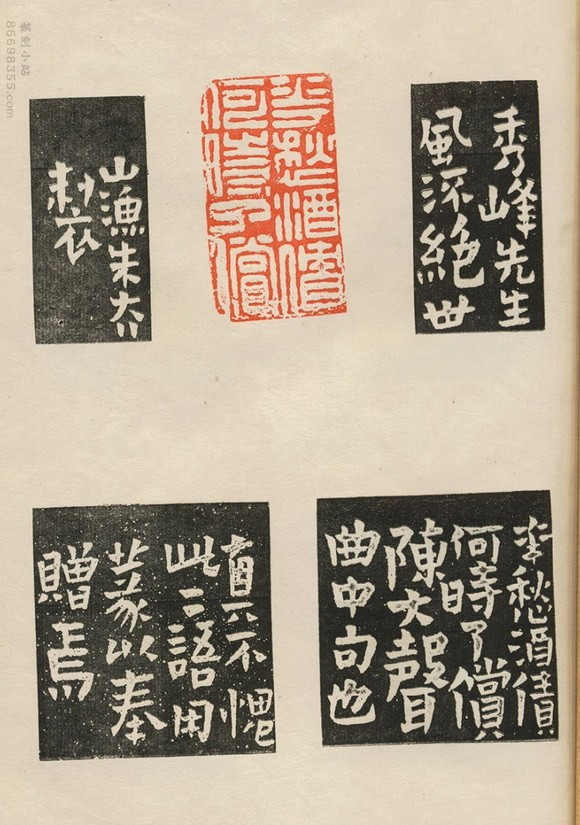 秀峰先生
風流絕世
愁酒債
何時了償
山漁朱
製
愁酒債
何時了償
陳大聲
曲中句也
真不愧
此二語用
篆以奉
贈焉
篆刻小站
86698355.com